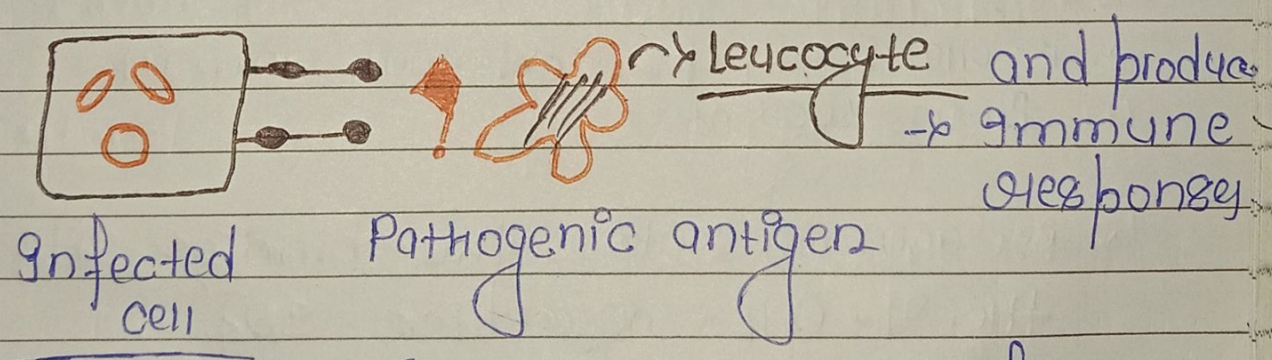 Leucocyte and produce
→ Immune
responses
Infected Pathogenic antigen
cell